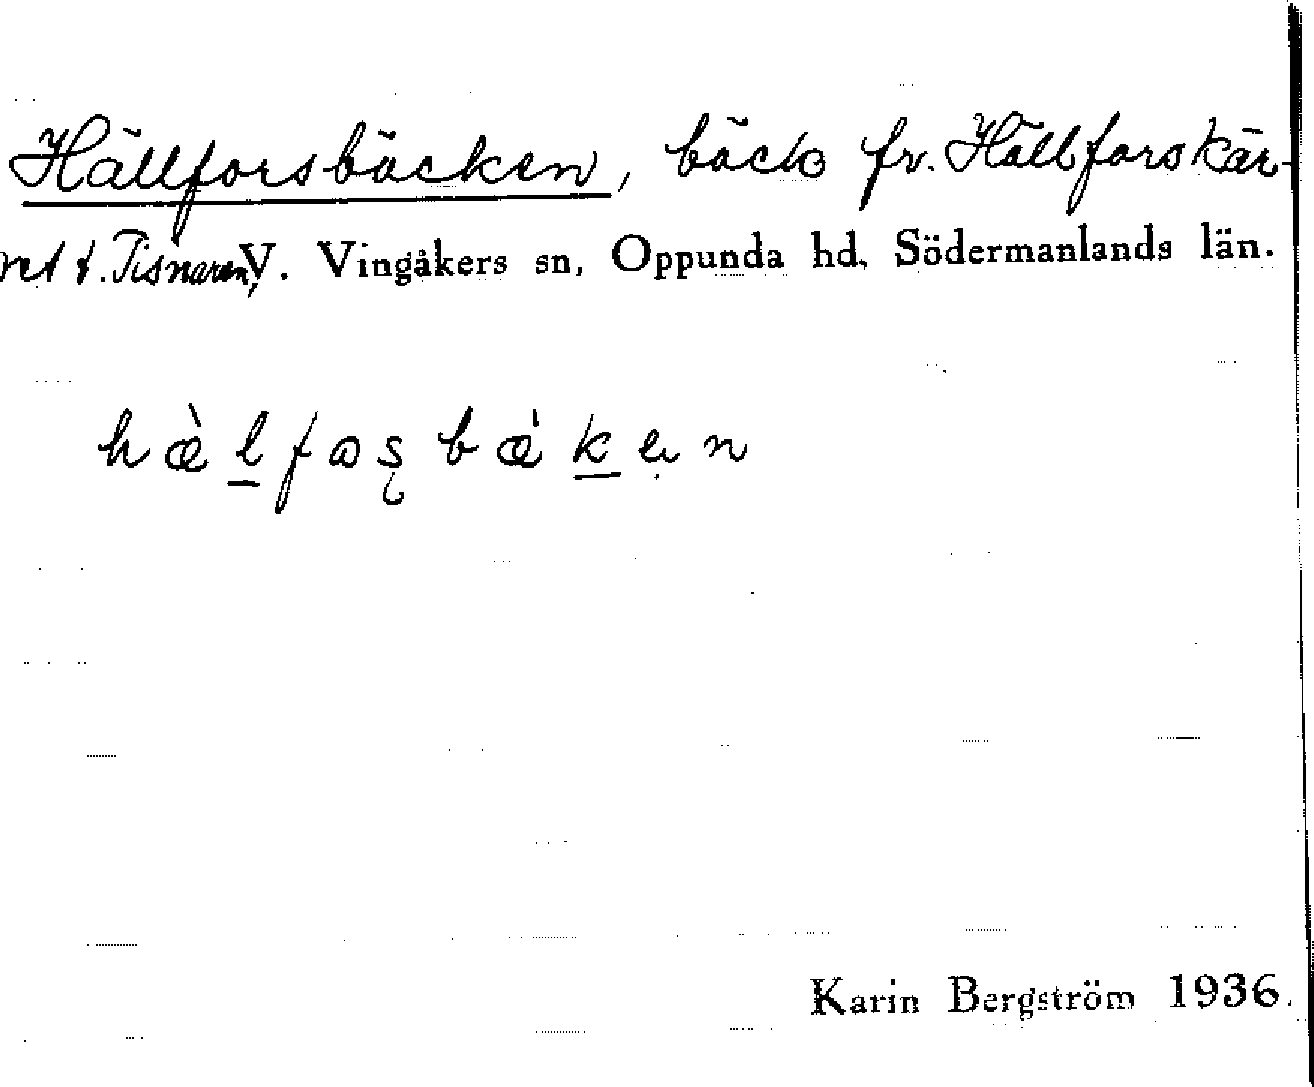 Hällforsbäcken, bäck fr. Hällforskär-
ret t. Tisnaren, V. Vingåkers sn, Oppunda hd, Södermanlands län.
hæ̀l̲fas̨bæ̇k̲ẹn
Karin Bergström 1936.